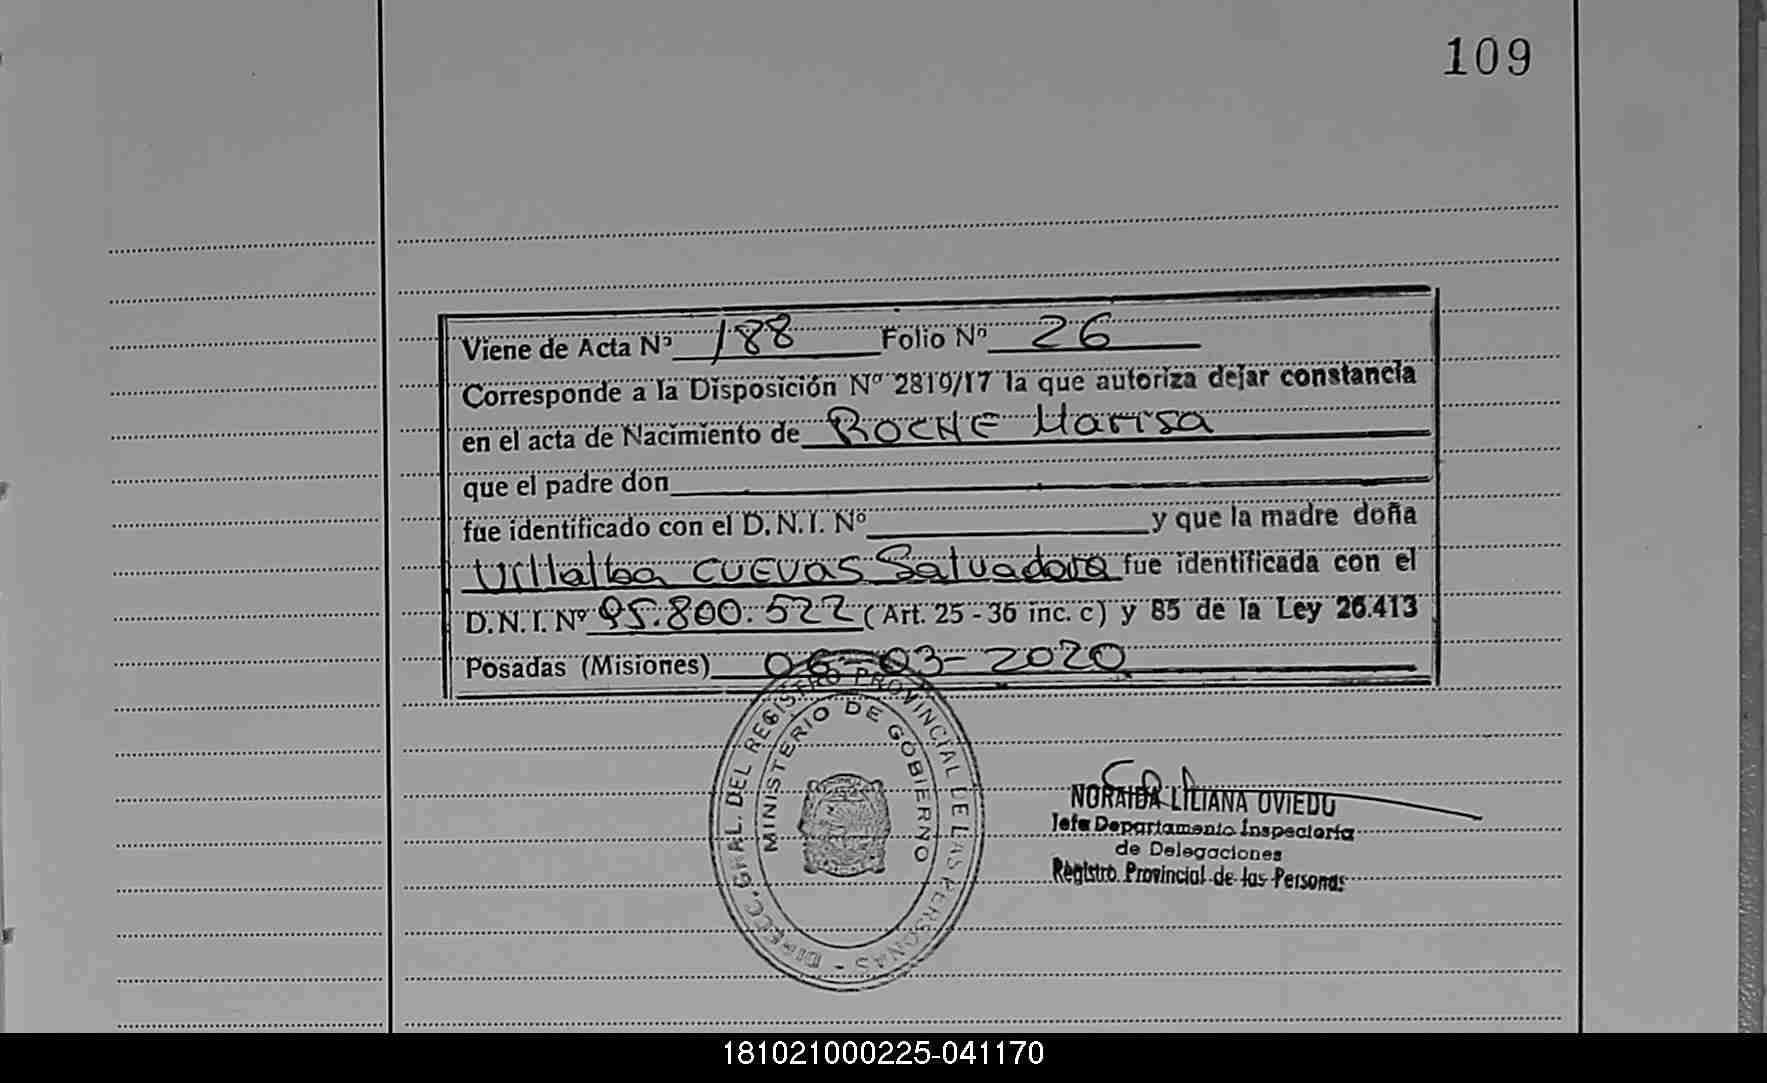 109
Viene de Acta Nº 188 Folio Nº 26
Corresponde a la Disposición Nº 2819/17 la que autoriza dejar constancia
en el acta de Nacimiento de ROCHE Marisa
que el padre don
fue identificado con el D.N.I. Nº y que la madre doña
Villalba CUEVAS Salvadora fue identificada con el
D.N.I. Nº 95.800.522 (Art. 25 - 36 inc. c) y 85 de la Ley 26.413
Posadas (Misiones) 06-03-2020
DIRECC. GRAL. DEL REGISTRO PROVINCIAL DE LAS PERSONAS -
MINISTERIO DE GOBIERNO
NORAIDA LILIANA OVIEDO
Jefa Departamento Inspectoría
de Delegaciones
Registro Provincial de las Personas
181021000225-041170